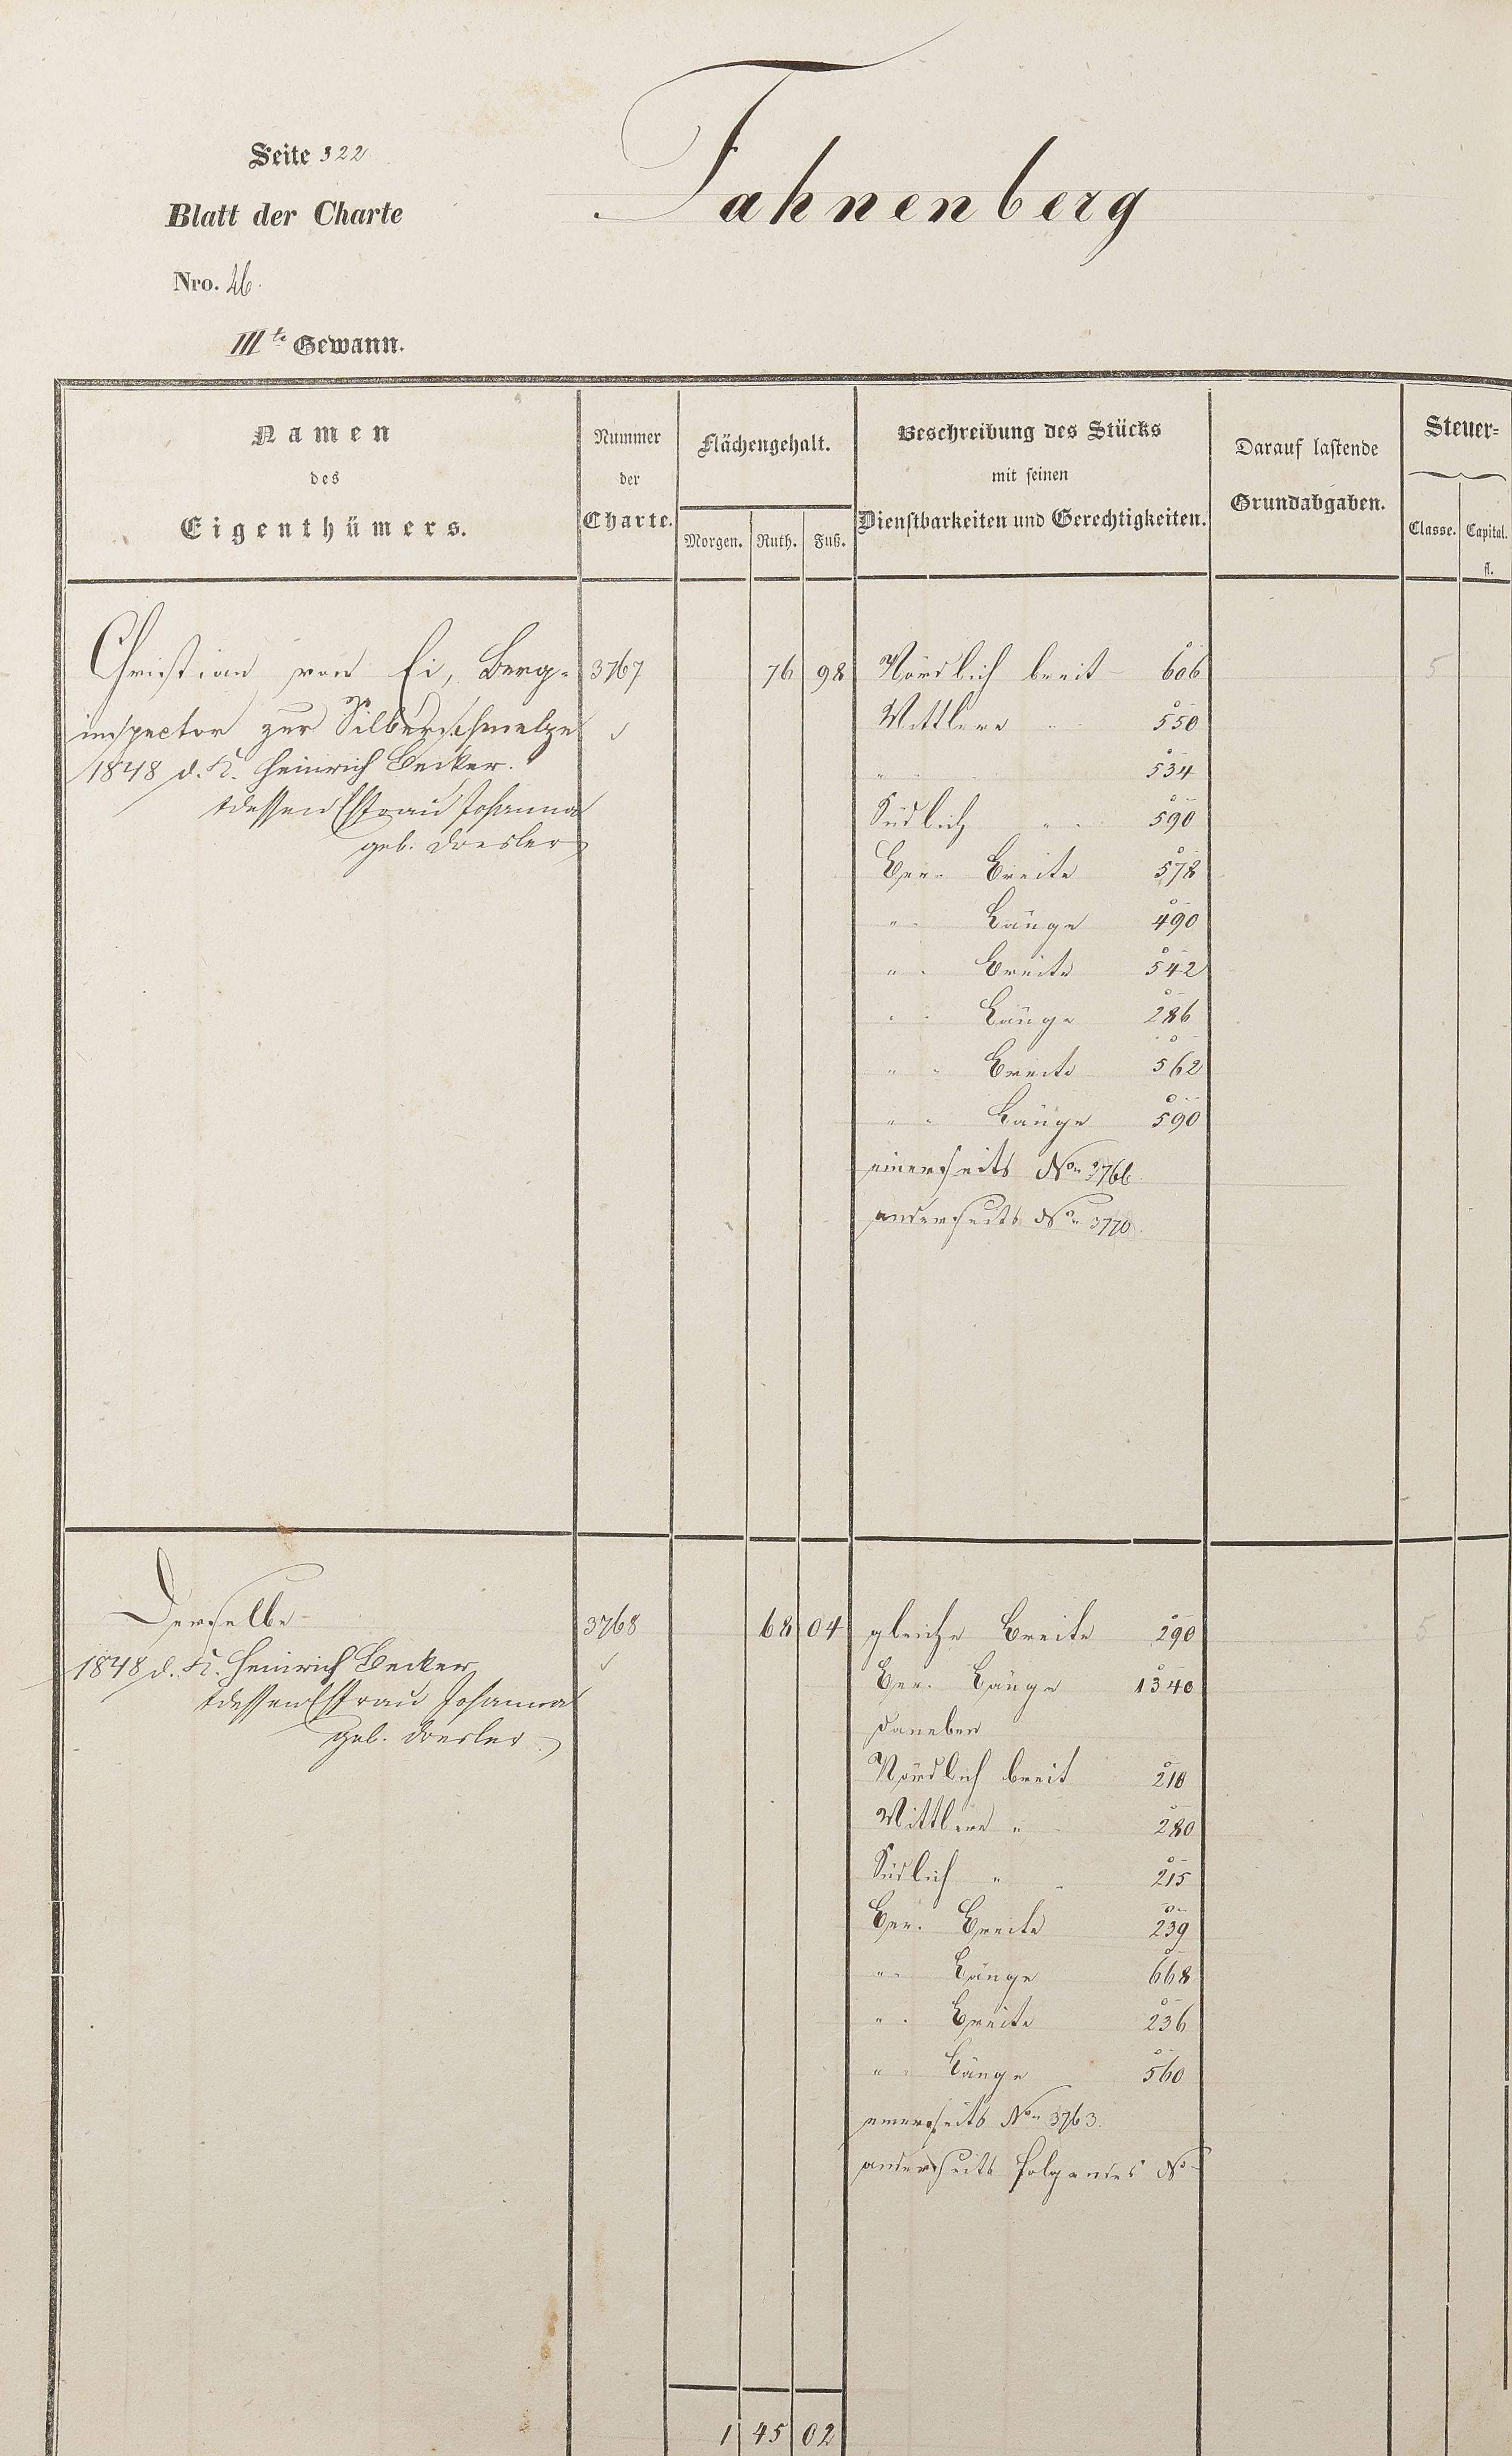 Seite 322
Blatt der Charte
Nro. 26.
IIIte Gewann.
Fahnenberg
Namen
des
Eigenthümers.
Nummer
der
Charte.
Flächengehalt.
Morgen. Ruth. Fuß.
Beschreibung des Stücks
mit seinen
Dienstbarkeiten und Gerechtigkeiten.
Darauf lastende
Grundabgaben.
Steuer-
Classe. Capital.
fl.
Christian von Ei, Berg- 3767 76 98 Nördlich breit 606 5
inspector zur Silberschmelze Mittlere " 550
1848 d. K. Heinrich Becker. " " 534
dessen Ehfrau Johanna Südlich " 590
geb. Dresler
Ger. Breite 578
" Länge 490
" Breite 542
" Länge 286
" Breite 562
" Länge 590
einerseits No 3766
anderseits No 3770
Derselbe 3768 68 04 gleiche Breite 290 5
1848 d. K. Heinrich Becker Ger. Länge 1340
dessen Ehfrau Johanna daneben
geb. Dresler Nördlich breit 210
Mittlere " 280
Südlich " 215
Ger. Breite 239
" Länge 668
" Breite 236
" Länge 560
einerseits No 3763.
anderseits folgendes No
1 45 02